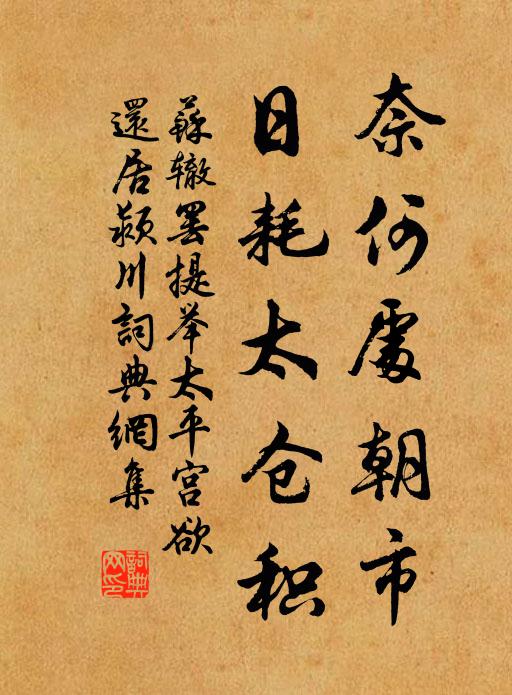 奈何處朝市
日耗太仓积
蘇辙罢提举太平宫欲
還居颍川詞典網集
詞典網印